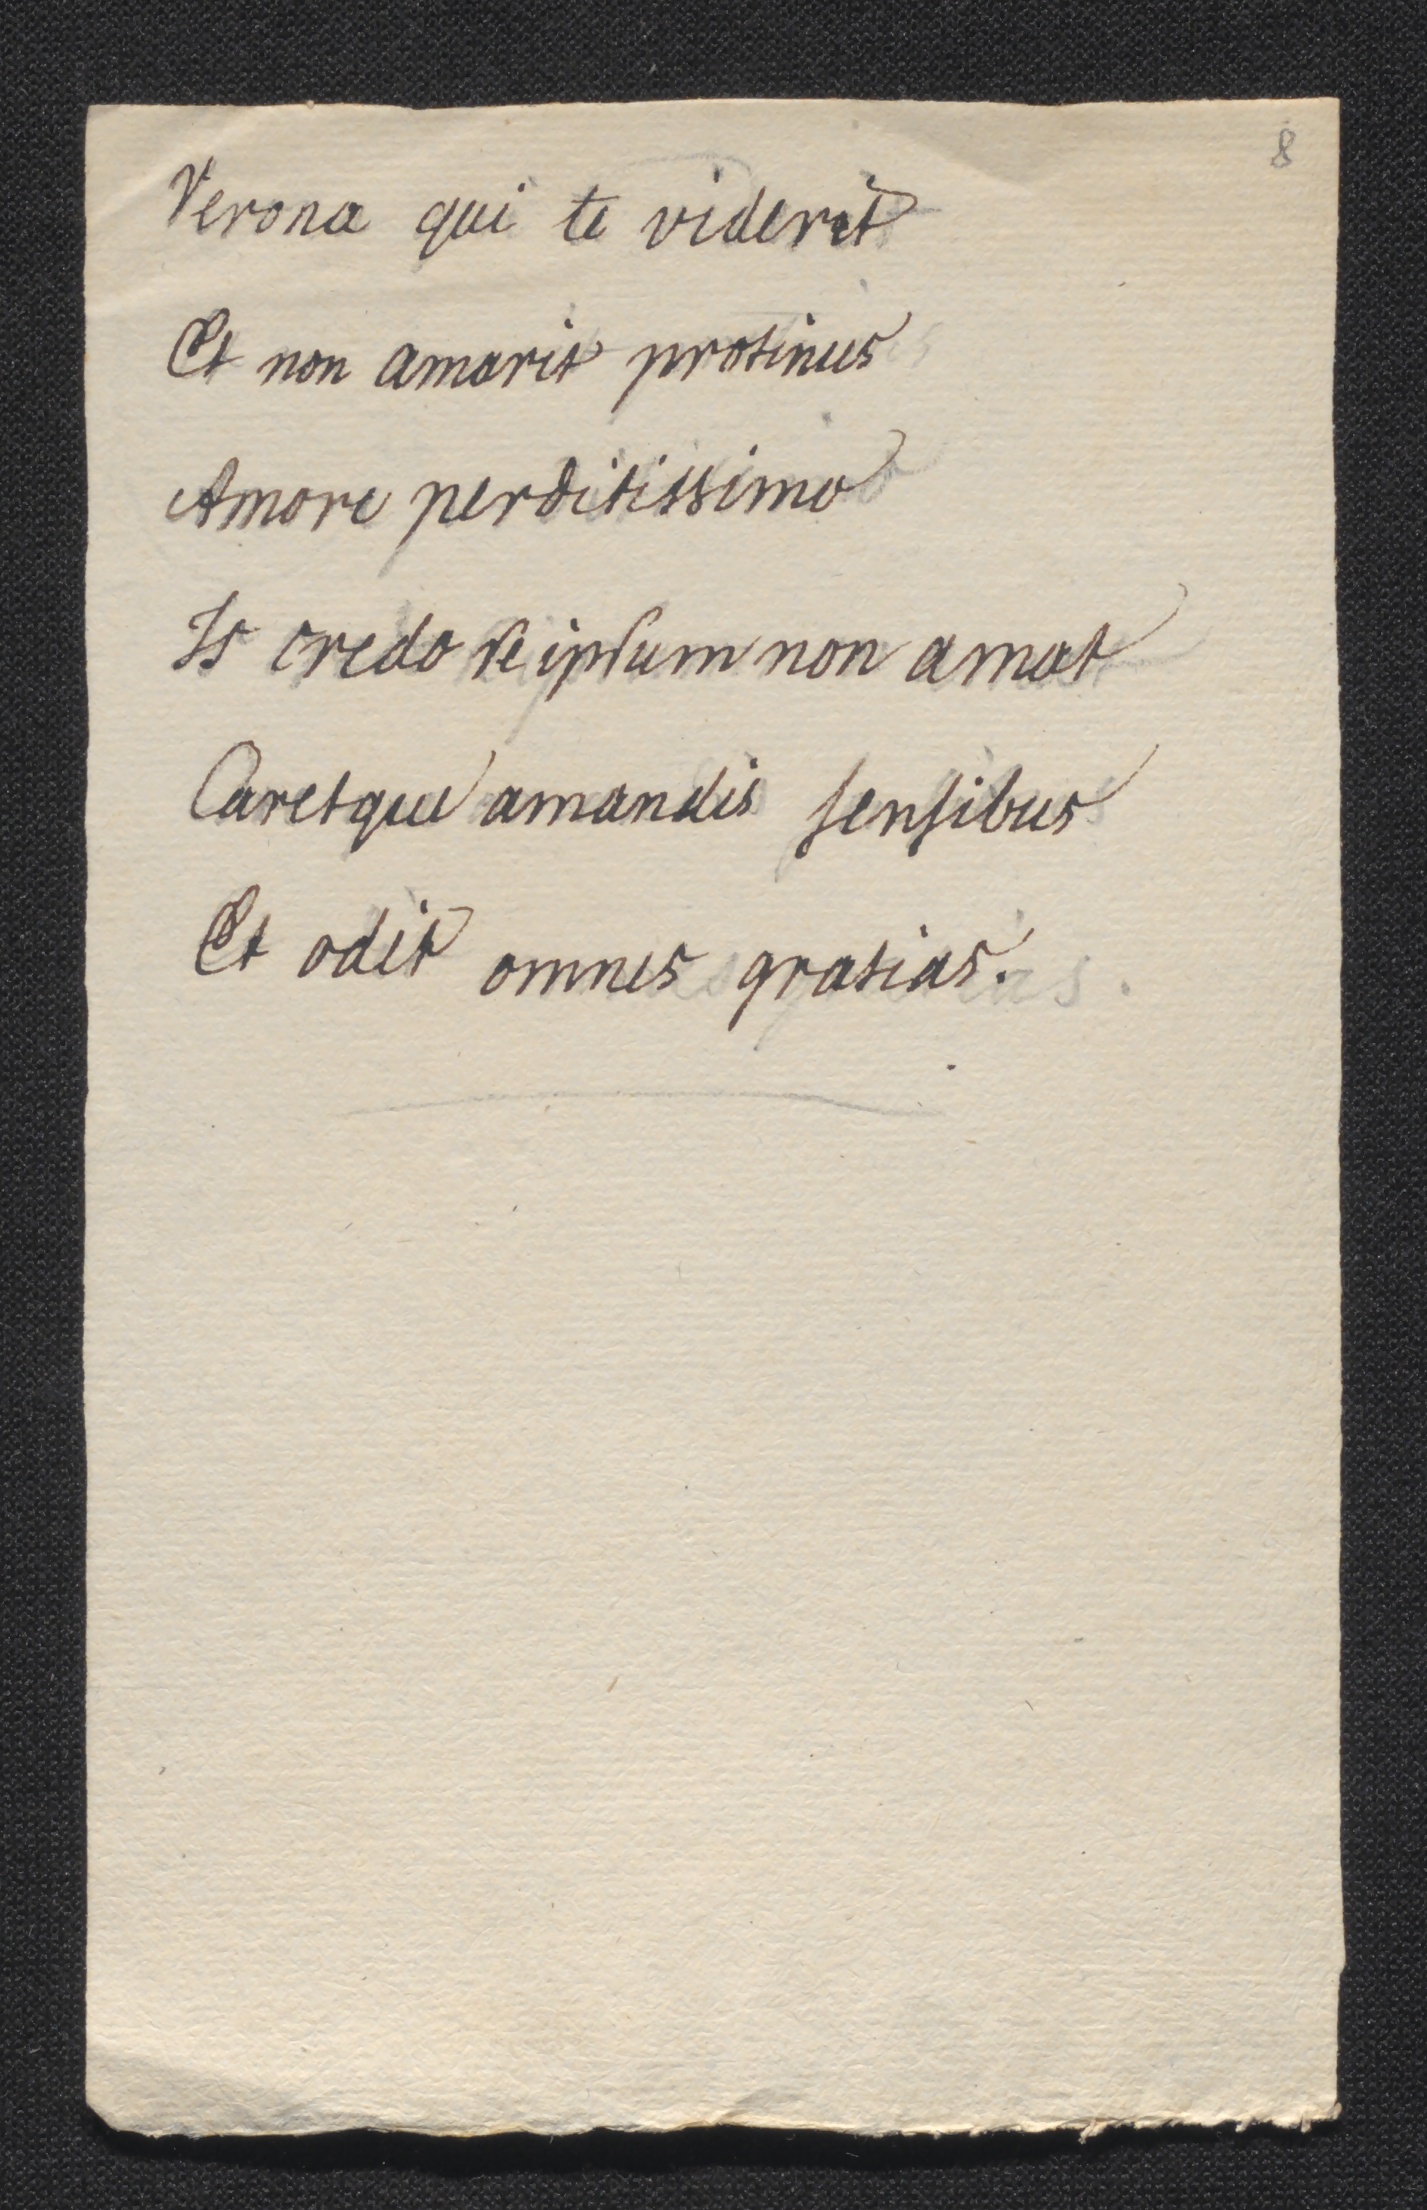 8
Verona qui te viderit
Et non amarit protinus
Amore perditissimo
Is credo se ipsum non amat
Caretque amandis sensibus
Et odit omnes gratias.